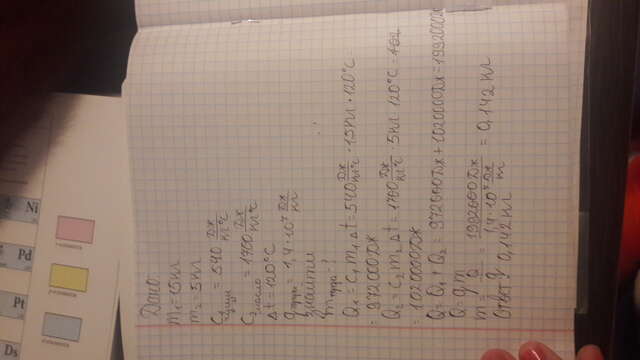 Ds
Pt
Pd
Ni
Дано:
m₁=15кг
m₂=5кг
C₁ чугун = 540 Дж/кг°C
C₂ масло = 1700 Дж/кг°C
Δt=120°C
q торфа = 1,4·10⁷ Дж/кг
знайти
m торфа-?
Q₁=C₁m₁Δt=540 Дж/кг°C·15кг·120°C
=972000Дж
Q₂=C₂m₂Δt=1700 Дж/кг°C·5кг·120°C=102
=1020000Дж
Q=Q₁+Q₂=972000Дж+1020000Дж=1992000Дж
Q=qm
m=Q/q=1992000Дж/1,4·10⁷ Дж/кг=0,142кг
Ответ: 0,142кг